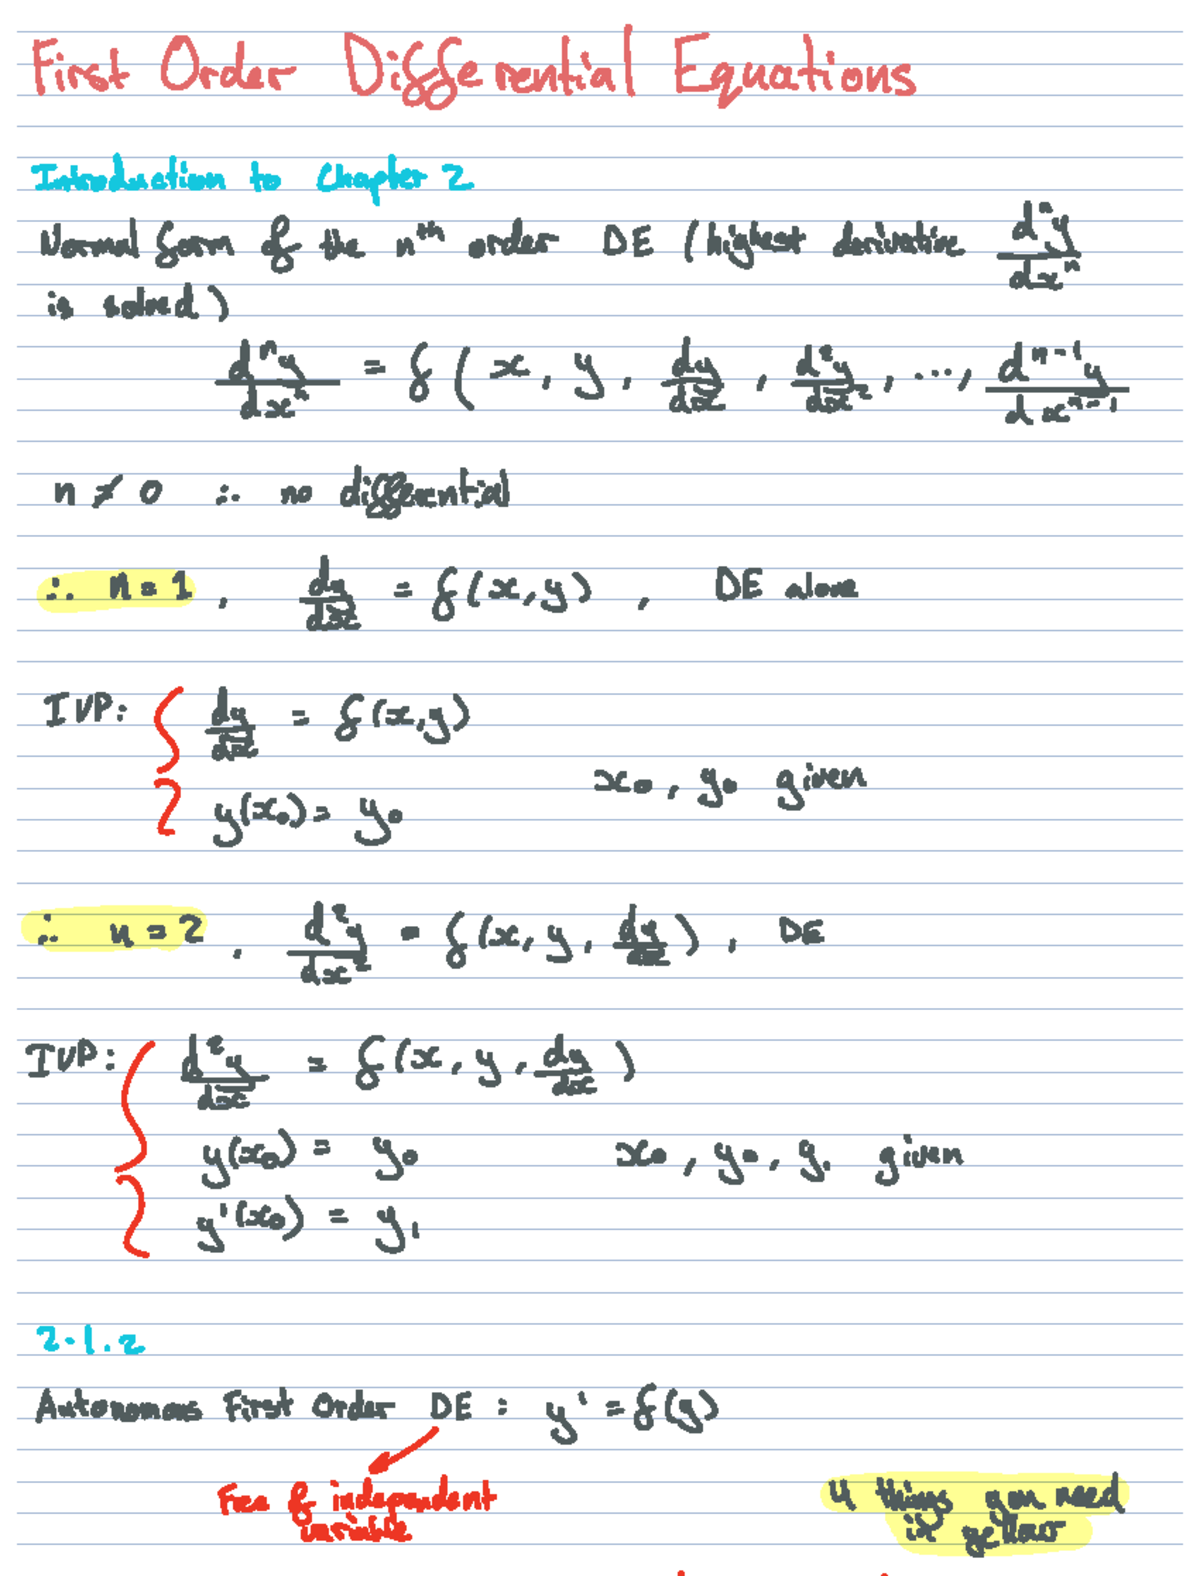 First Order Differential Equations
Introduction to Chapter 2
Normal form of the nᵗʰ order DE (highest derivative dⁿy/dxⁿ
is solved)
dⁿy/dxⁿ = f(x, y, dy/dx, d²y/dx², ..., dⁿ⁻¹y/dxⁿ⁻¹
n ≠ 0 ∴ no differential
∴ n = 1, dy/dx = f(x,y), DE alone
IVP: { dy/dx = f(x,y)
y(x₀) = y₀ x₀, y₀ given
∴ n = 2, d²y/dx² = f(x, y, dy/dx), DE
IVP: { d²y/dx = f(x, y, dy/dx)
y(x₀) = y₀ x₀, y₀, y₁ given
y'(x₀) = y₁
2.1.2
Autonomous First Order DE: y' = f(y)
Free of independent
variable
4 things you need
in yellow